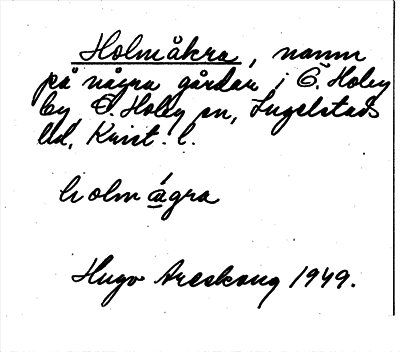 Holmåkra, namn
på några gårdar i Ö. Hoby
by, Ö. Hoby sn, Ingelstads
hd, Krist. l.
holmågra
Hugo Areskoug 1949.